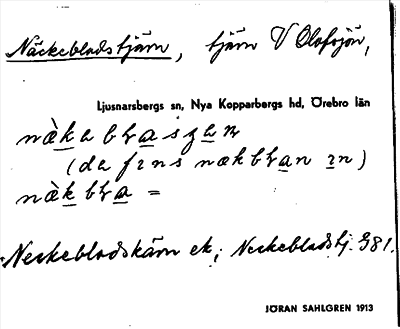 Näckebladstjärn, tjärn V Olofsjön,
Ljusnarsbergs sn, Nya Kopparbergs hd, Örebro län
(de fıns nækbɬan ın)
nækbɬa =
Neckebladskärn ek; Neckebladstj. G81.
JÖRAN SAHLGREN 1913